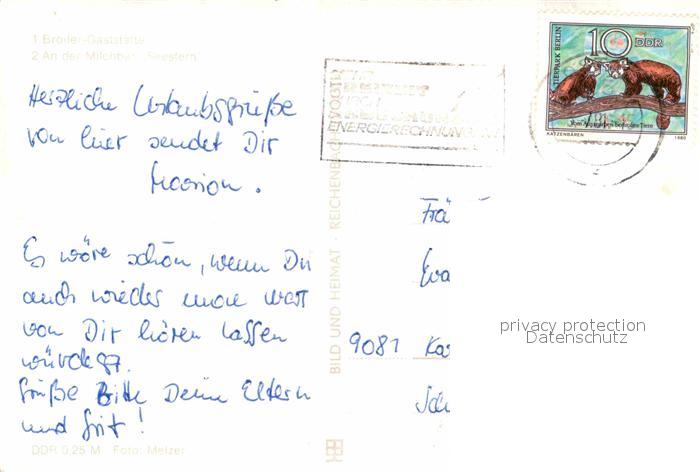 1 Broiler-Gaststätte
2 An der Milchbar "Seestern"
Herzliche Urlaubsgrüße
von hier sendet Dir
Marion.
Es wäre schön, wenn Du
auch wieder mal was
von Dir hören lassen
würdest.
Grüße Bitte Deine Eltern
und Grit!
DDR 0,25 M Foto: Melzer
BILD UND HEIMAT · REICHENBACH
ENERGIERECHNUNG
TIERPARK BERLIN
10 DDR
Vom Aussterben bedrohte Tiere
KATZENBÄREN 1980
Frä
Eva
9081 Kar
privacy protection
Datenschutz